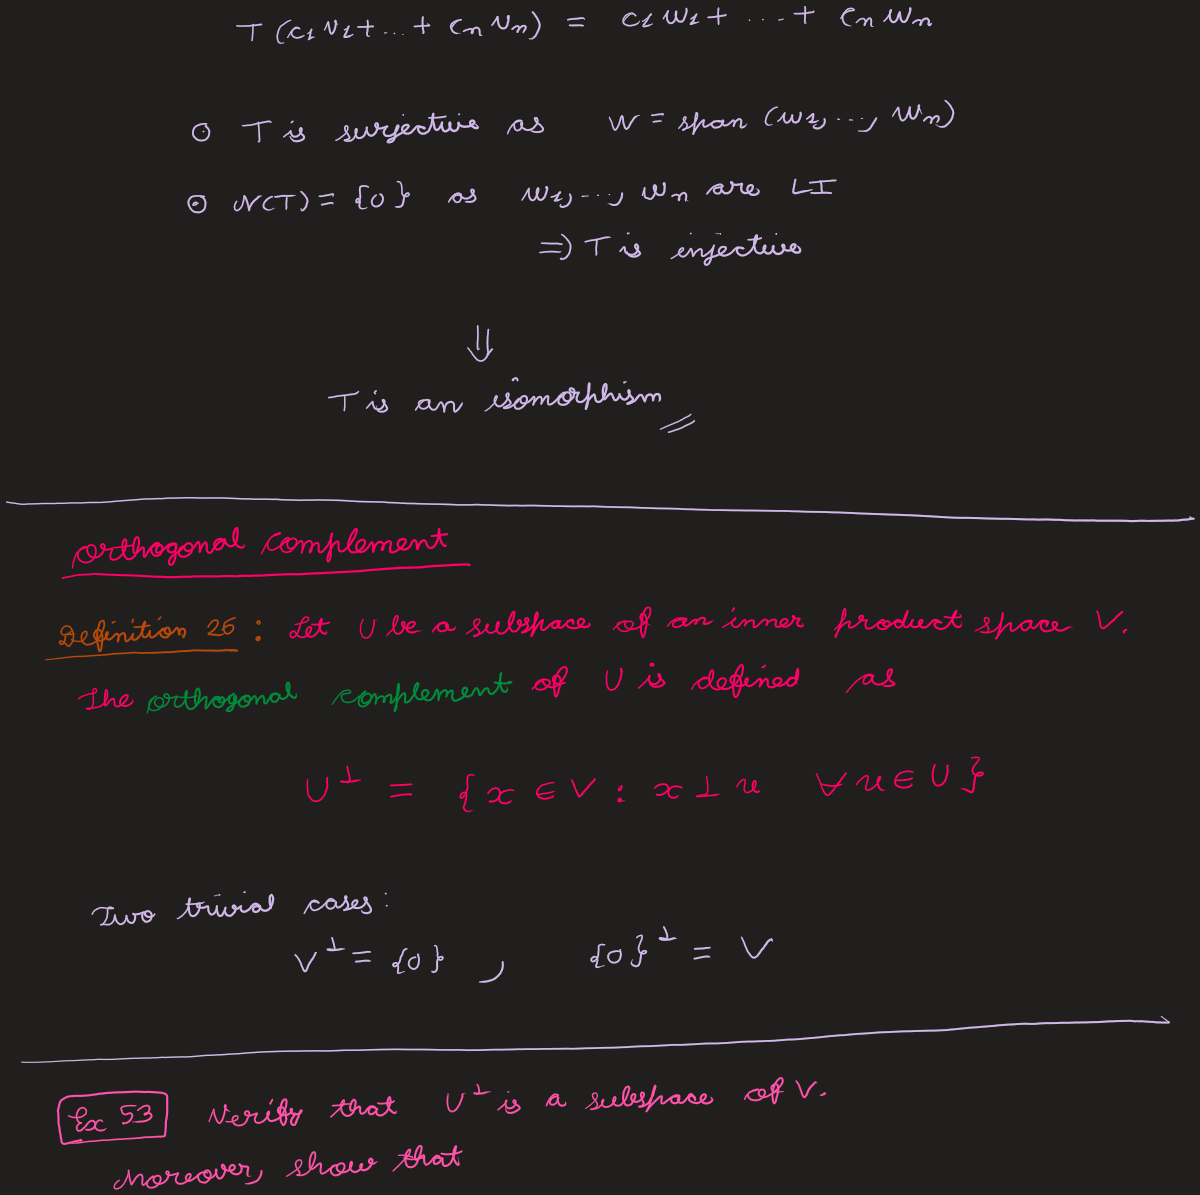 T (c₁ v₁ + ... + cₙ vₙ) = c₁ w₁ + ... + cₙ wₙ
⊙ T is surjective as W = span (w₁, ..., wₙ)
⊙ N(T) = {0} as w₁, ..., wₙ are LI
⇒ T is injective
⇓
T is an isomorphism
Orthogonal Complement
Definition 26 : Let U be a subspace of an inner product space V.
The orthogonal complement of U is defined as
U^⊥ = {x ∈ V : x ⊥ u ∀ u ∈ U}
Two trivial cases:
V^⊥ = {0} , {0}^⊥ = V
Ex 53 Verify that U^⊥ is a subspace of V.
Moreover, show that